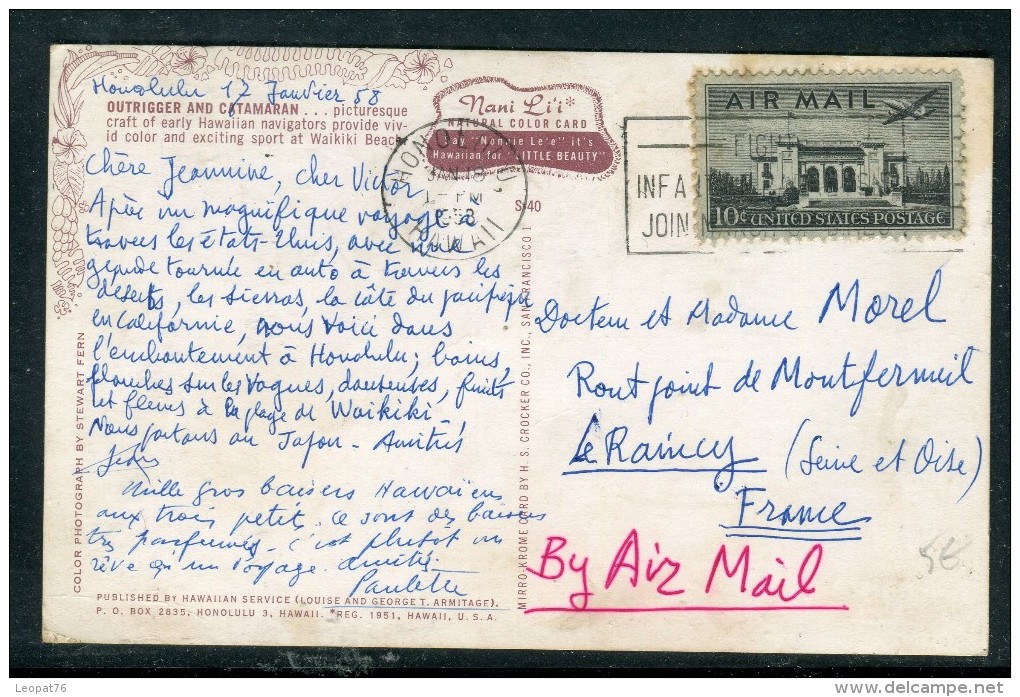 Honolulu 17 Janvier 58
OUTRIGGER AND CATAMARAN ... picturesque
craft of early Hawaiian navigators provide viv-
id color and exciting sport at Waikiki Beach.
Nani Li'i*
NATURAL COLOR CARD
Say "Nonnie Le'e" it's
Hawaiian for "LITTLE BEAUTY"
S-40
HONOLULU,
JAN 18
PM
1958
HAWAII
AIR MAIL
10¢ UNITED STATES POSTAGE
FIGHT
INFA
JOIN
Chère Jeannine, cher Victor,
Après un magnifique voyage à
travers les états-Unis, avec une
grande tournée en auto à travers les
déserts, les sierras, la côte du pacifique
en californie, nous voici dans
l'enchantement à Honolulu; bains,
planches sur les vagues, danseuses, fruits
et fleurs à la plage de Waikiki.
Nous partons au Japon - Amitiés
Jean
Mille gros baisers Hawaïens
aux trois petits. Ce sont des baisers
très parfumés - c'est plutot un
rêve qu'un voyage. Amitiés.
Paulette
Docteur et Madame Morel
Ront point de Montfermeil
Le Raincy (Seine et Oise)
France
By Air Mail
5€
COLOR PHOTOGRAPH BY STEWART FERN
MIRRO-KROME CARD BY H. S. CROCKER CO., INC., SAN FRANCISCO 1
PUBLISHED BY HAWAIIAN SERVICE (LOUISE AND GEORGE T. ARMITAGE),
P. O. BOX 2835, HONOLULU 3, HAWAII. *REG. 1951, HAWAII, U.S.A.
Leopat76
delcampe.net